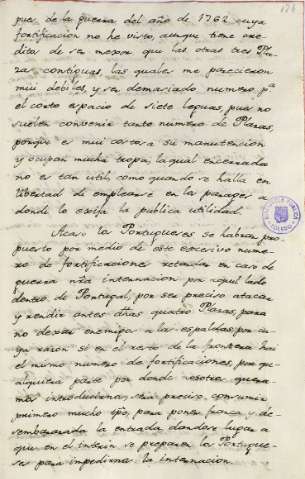 pues de la guerra del año de 1762 cuya
fortificacion no he visto, aunque tiene cre-
dito de ser mejor que las otras tres Pla-
zas contiguas las quales me parecieron
mui debiles, y ser demasiado numero, pª
el corto espacio de siete leguas, pues no
suelen convenir tanto numero de Plazas,
porque es mui costosa su manutencion
y ocupan mucha tropa, la qual encerrada
no es tan util, como quando se halla en
libertad de emplearse en los parages a
donde lo exija la publica utilidad.
Acaso los Portugueses se habran pro-
puesto por medio de este excesivo nume-
ro de fortificaciones retardar en caso de
guerra nrã internacion por aquel lado
dentro de Portugal, por ser preciso atacar
y rendir antes dhas quatro Plazas, para
no dexar enemigos a las espaldas, por cu-
ya razon si en el resto de la frontera hai
el mismo numero de fortificaciones, por qua-
lquiera parte por donde nosotros quera-
mos introducirnos, será preciso consumir
primero mucho tpõ, para poner franca y de-
sembarazada la entrada, dandose lugar a
que en el interin se preparen los Portugue-
ses para impedirnos la internacion.